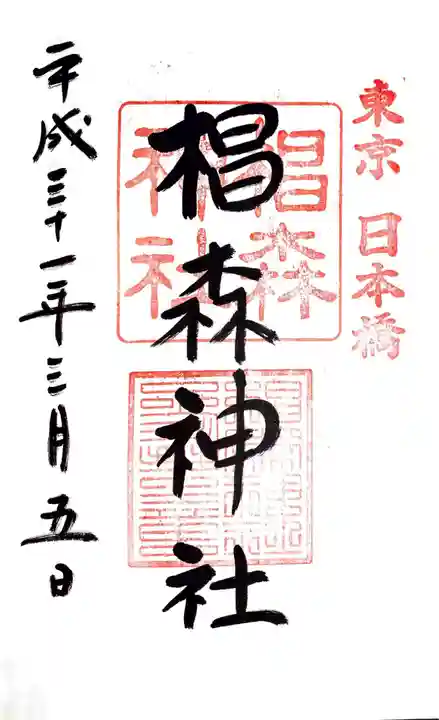 東京 日本橋
椙森神社
椙森神社
平成三十一年三月五日